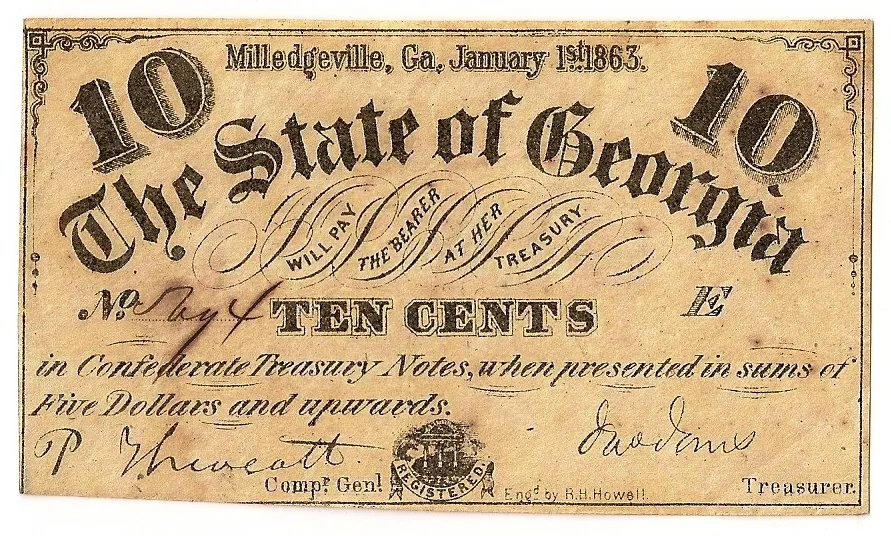 Milledgeville, Ga, January 1st 1863.
10 10
The State of Georgia
WILL PAY THE BEARER AT HER TREASURY
No.
TEN CENTS
E
in Confederate Treasury Notes, when presented in sums of
Five Dollars and upwards.
P Thweatt
Compr Genl
REGISTERED.
Engd by R.H. Howell.
Treasurer.